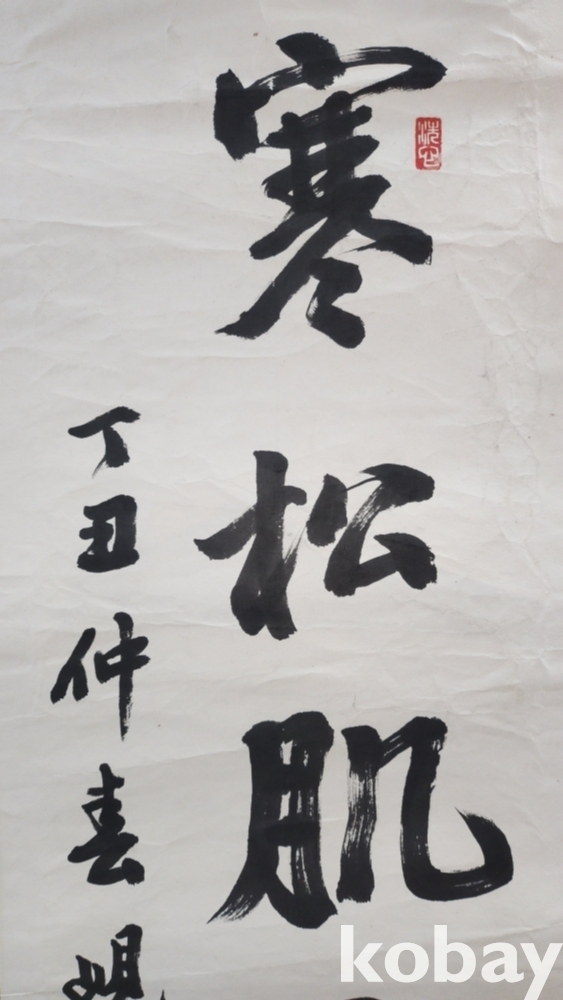 寒松肌
丁丑仲春
洗心
kobay